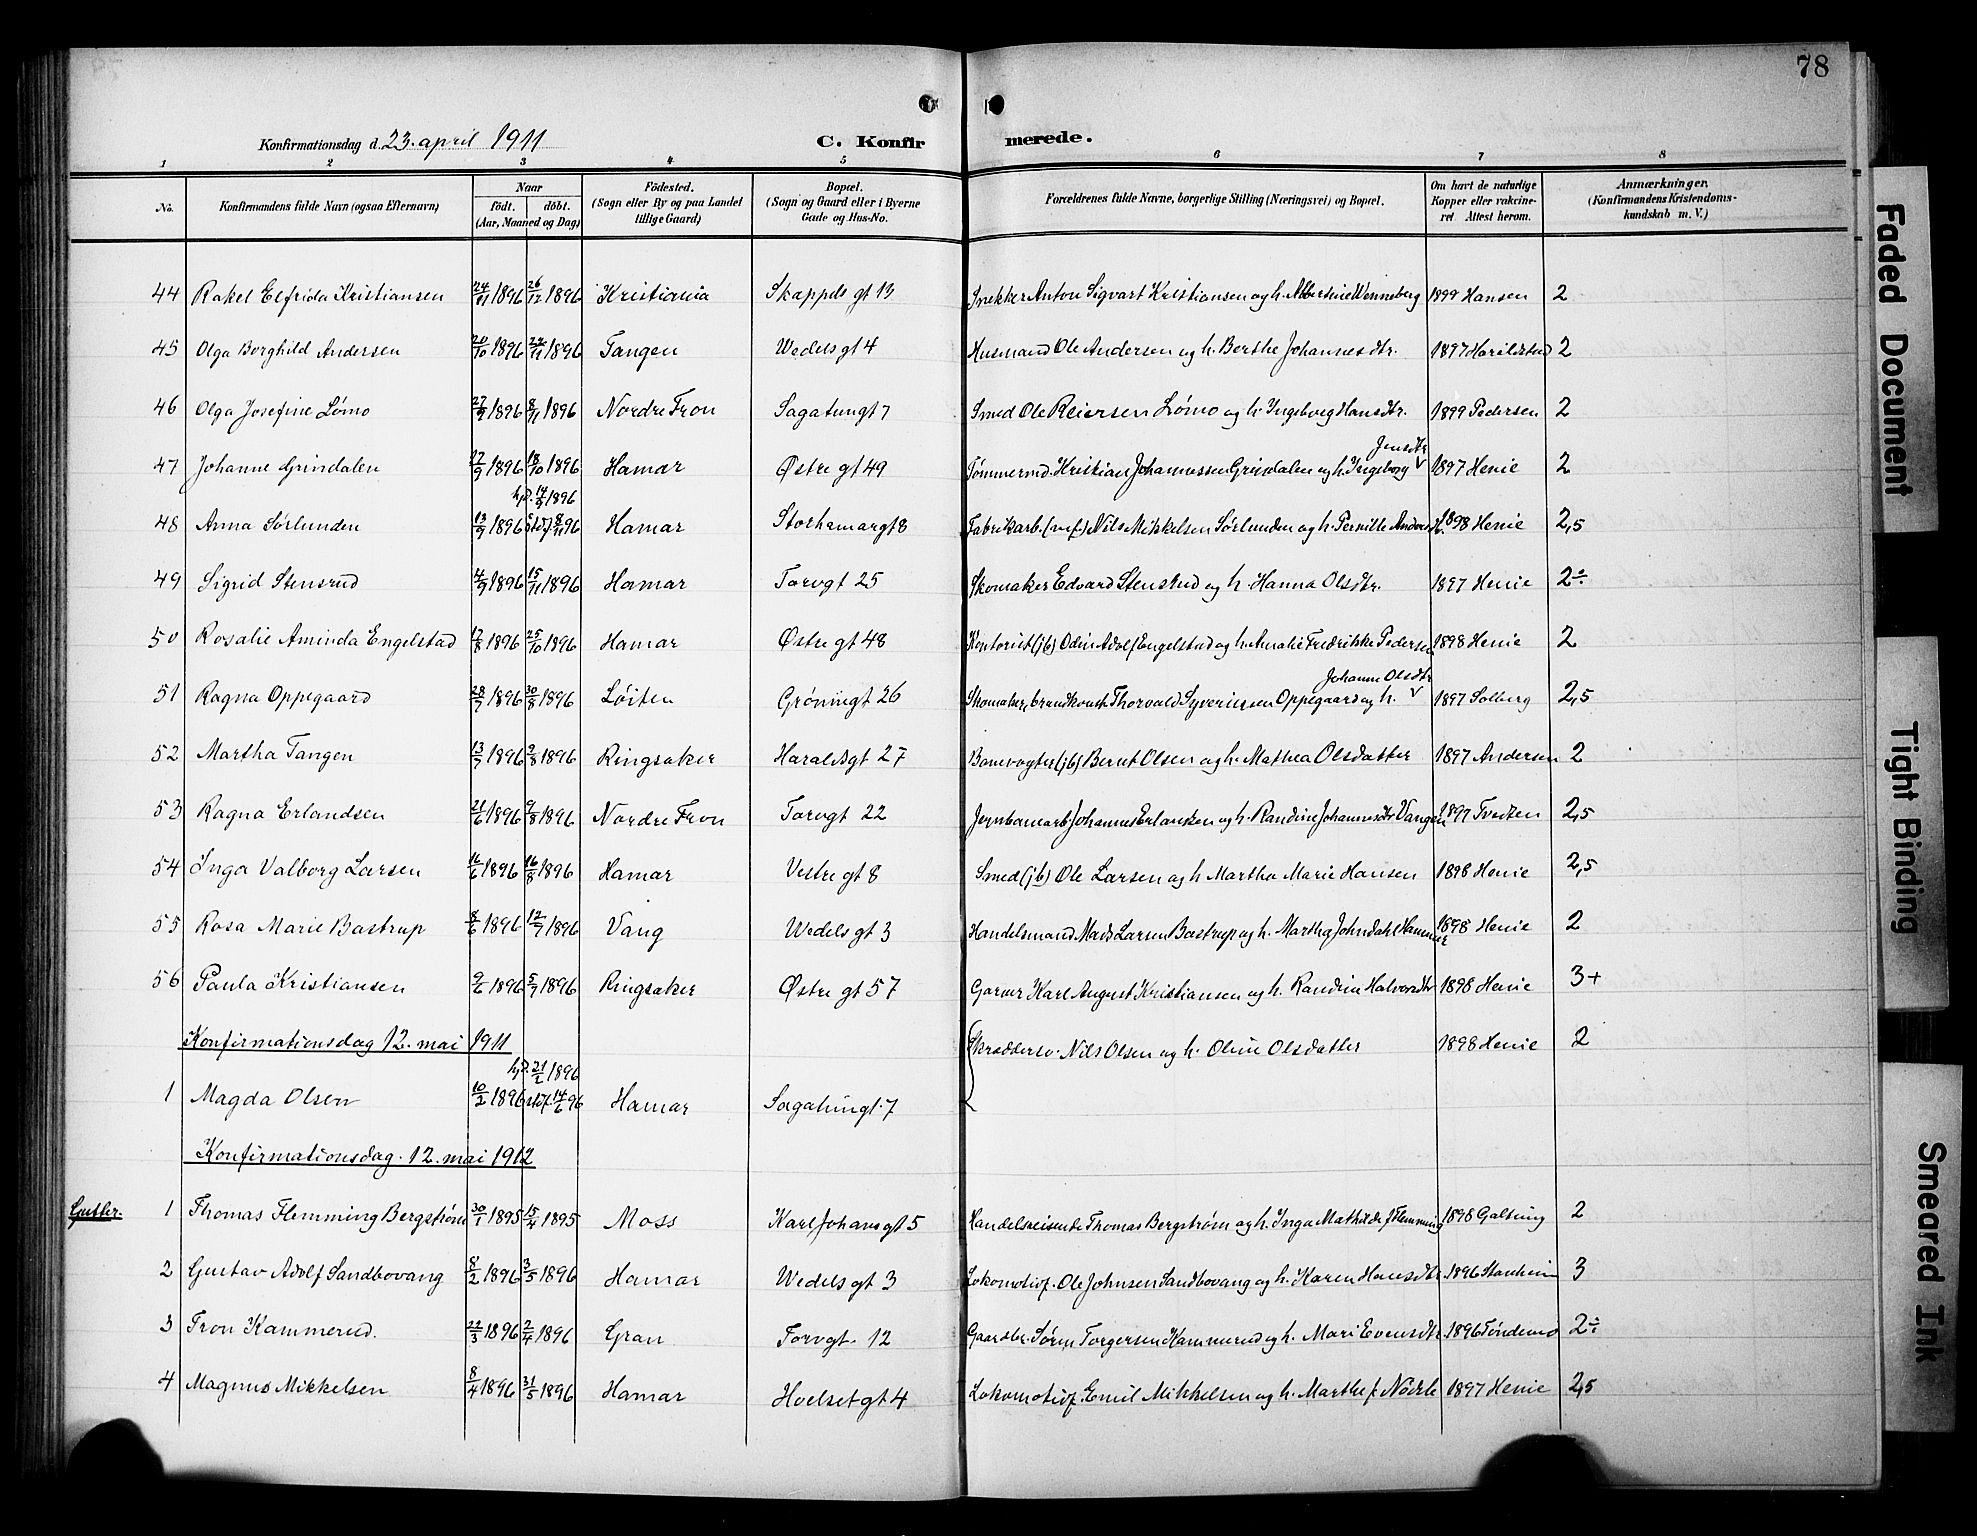 78
Konfirmationsdag d. 23. april 1911
C. Konfirmerede.
1 2 3 4 5 6 7 8
No.
Konfirmandens fulde Navn (ogsaa Efternavn)
Naar
født. døbt.
(Aar, Maaned og Dag)
Fødested.
(Sogn eller By og paa Landet
tillige Gaard)
Bopæl.
(Sogn og Gaard eller i Byerne
Gade og Hus-No.
Forældrenes fulde Navne, borgerlige Stilling (Næringsvei) og Bopæl.
Om havt de naturlige
Kopper eller vakcine-
ret Attest herom.
Anmærkninger.
(Konfirmandens Kristendoms-
kundskab m. V.)
44 Rakel Elfrida Kristiansen 24/11 1896 26/12 1896 Kristiania Skappels gt 13 Snekker Anton Sigvart Kristiansen og h. Albertine Wenneberg 1899 Hansen 2
45 Olga Borghild Andersen 20/10 1896 22/11 1896 Tangen Wedels gt 4 Husmand Ole Andersen og h. Berthe Johannesdtr. 1897 2
46 Olga Josefine Lømo 27/9 1896 8/11 1896 Nordre Fron Sagatungt 7 Smed Ole Reiersen Lømo og h. Ingeborg Hansdtr. 1899 Pedersen 2
Jensdtr
47 Johanne Grindalen 27/9 1896 18/10 1896 Hamar Østre gt 49 Tømmermd. Kristian Johannessen Grindalen og h. Ingeborg V 1897 Henie 2
hjd. 14/9 1896
48 Anna Sørlunden 13/9 1896 stdf 8/11 96 Hamar Storhamargt 8 Fabrikarb. Nils Mikkelsen Sørlunden og h. Pernille 1898 Henie 2,5
49 Sigrid Stensrud 4/9 1896 15/11 1896 Hamar Torvgt 25 Skomaker Edvard Stensrud og h. Hanna Olsdtr. 1897 Henie 2÷
50 Rosalie Aminda Engelstad 17/8 1896 25/10 1896 Hamar Østre gt 48 Kontorist (jb) Odin Adolf Engelstad og h. Amalie Fredrikke Pedersen 1898 Henie 2
Johanne Olsdtr
51 Ragna Oppegaard 28/7 1896 30/8 1896 Løiten Grønnegt 26 Skomaker, brandkonst. Thorvald Syversen Oppegaard og h. V 1897 Solberg 2,5
52 Martha Tangen 13/7 1896 9/8 1896 Ringsaker Haraldsgt 27 Banevogter (jb) Bernt Olsen og h. Mathea Olsdatter 1897 Andersen 2
53 Ragna Erlandsen 21/6 1896 9/8 1896 Nordre Fron Torvgt 22 Jernbanearb. Johannes Erlandsen og h. Randine Johannesdtr Vangen 1897 Tvedten 2,5
54 Inga Valborg Larsen 16/6 1896 16/8 1896 Hamar Vestre gt 8 Smed (jb) Ole Larsen og h. Martha Marie Hansen 1898 Henie 2,5
55 Rosa Marie Bastrup 8/6 1896 12/7 1896 Vang Wedels gt 3 Handelsmand Mads Larsen Bastrup og h. Martha Johndahl Hammer 1898 Henie 2
56 Paula Kristiansen 9/6 1896 5/7 1896 Ringsaker Østre gt 57 Garver Karl August Kristiansen og h. Randine Halvorsdtr 1898 Henie 3+
Konfirmationsdag 12. mai 1911
hjd. 21/2 1896
1 Magda Olsen 10/2 1896 stdf. 14/6 96 Hamar Sagatungt. 7 Skræddersv. Nils Olsen og h. Oline Olsdatter 1898 Henie 2
Konfirmationsdag. 12. mai 1912
Gutter.
1 Thomas Flemming Bergstrøm 30/1 1895 15/4 1895 Moss Karl Johans gt 5 Handelsreisende Thomas Bergstrøm og h. Inga Mathilde f. Flemming 1898 Galtung 2
2 Gustav Adolf Sandbovang 8/2 1896 3/5 1896 Hamar Wedels gt 3 Lokomotivf. Ole Johnsen Sandbovang og h. Karen Hansdtr. 1896 Stenheim 3
3 Tron Kammerud. 22/3 1896 2/4 1896 Gran Torvgt. 12 Gaardbr. Søren Torgersen Kammerud og h. Mari Evensdtr. 1896 2÷
4 Magnus Mikkelsen 8/4 1896 31/5 1896 Hamar Hoelsetgt 4 Lokomotivf. Emil Mikkelsen og h. Marthe f. Nødle 1897 Henie 2,5
Faded Document
Tight Binding
Smeared Ink